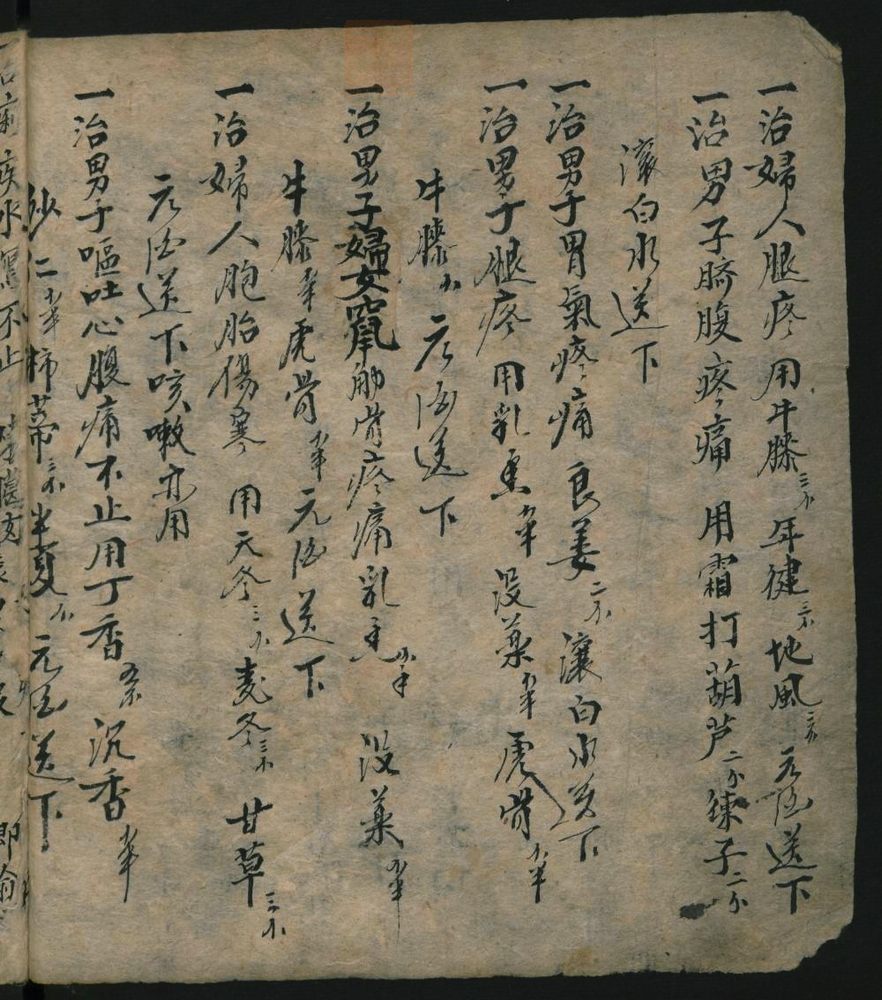 一治婦人腿疼用牛膝三分年健三分地風三分元酒送下
一治男子臍腹疼痛用霜打葫芦二分練子二分
滚白水送下
一治男子胃氣疼痛良姜二分滚白水送下
一治男子腿疼用乳香分半没藥分半虎骨分半
牛膝分元酒送下
一治男子婦女竄觔骨疼痛乳香分半没藥分半
牛膝分半虎骨分半元酒送下
一治婦人胞胎傷寒用天冬三分麦冬三分甘草三分
元酒送下咳嗽亦用
一治男子嘔吐心腹痛不止用丁香沉香分半
砂仁分半柿蒂三分半夏分元酒送下